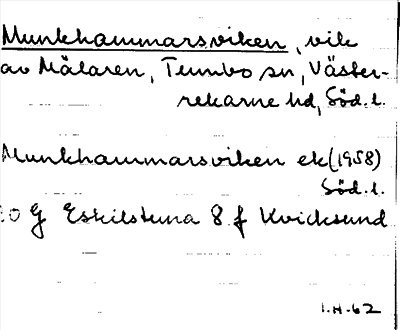 Munkhammarsviken, vik
av Mälaren, Tumbo sn, Väster-
rekarne hd, Söd. l.
Munkhammarsviken ek (1958)
Söd. l.
10 G Eskilstuna 8 f Kvicksund
1.H.62